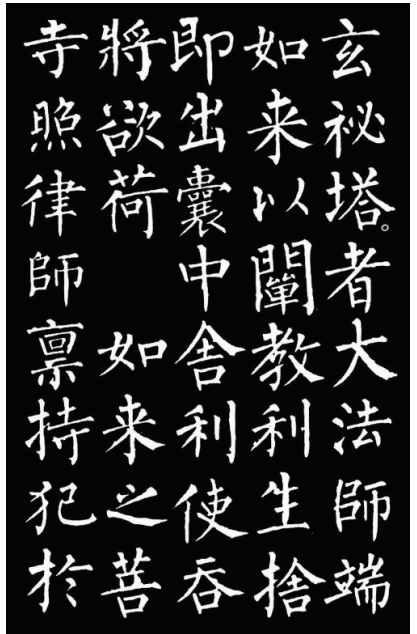 玄祕塔者大法師端
如来以闡教利生捨
即出囊中舎利使吞
將欲荷 如来之菩
寺照律師禀持犯於